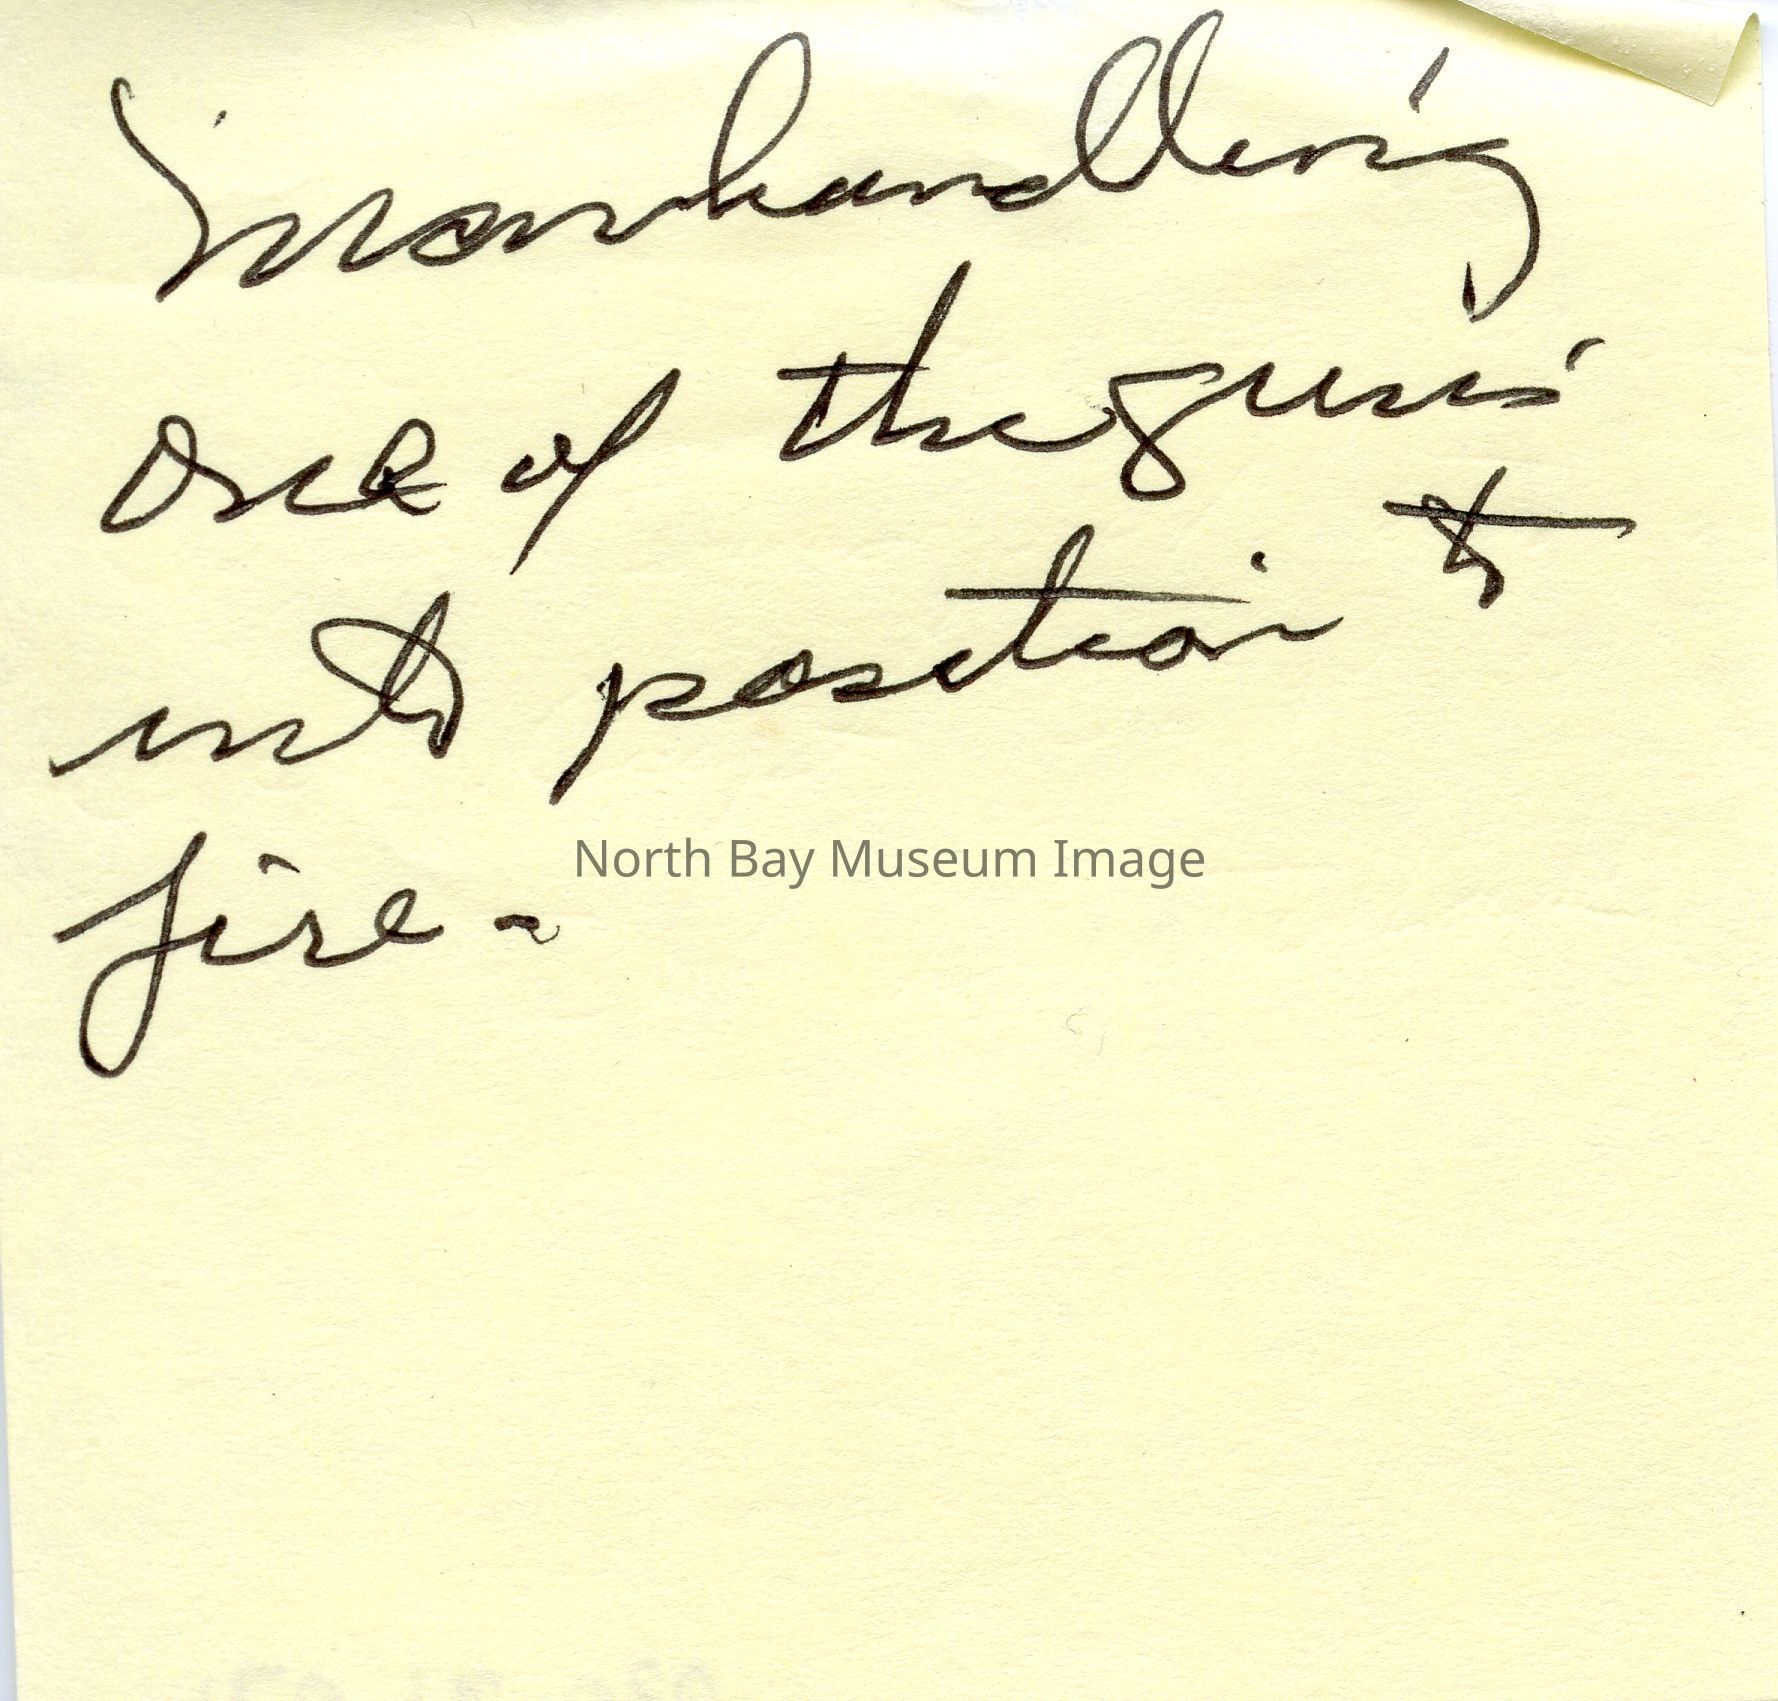 Manhandling
one of the guns
into position to
fire -
North Bay Museum Image